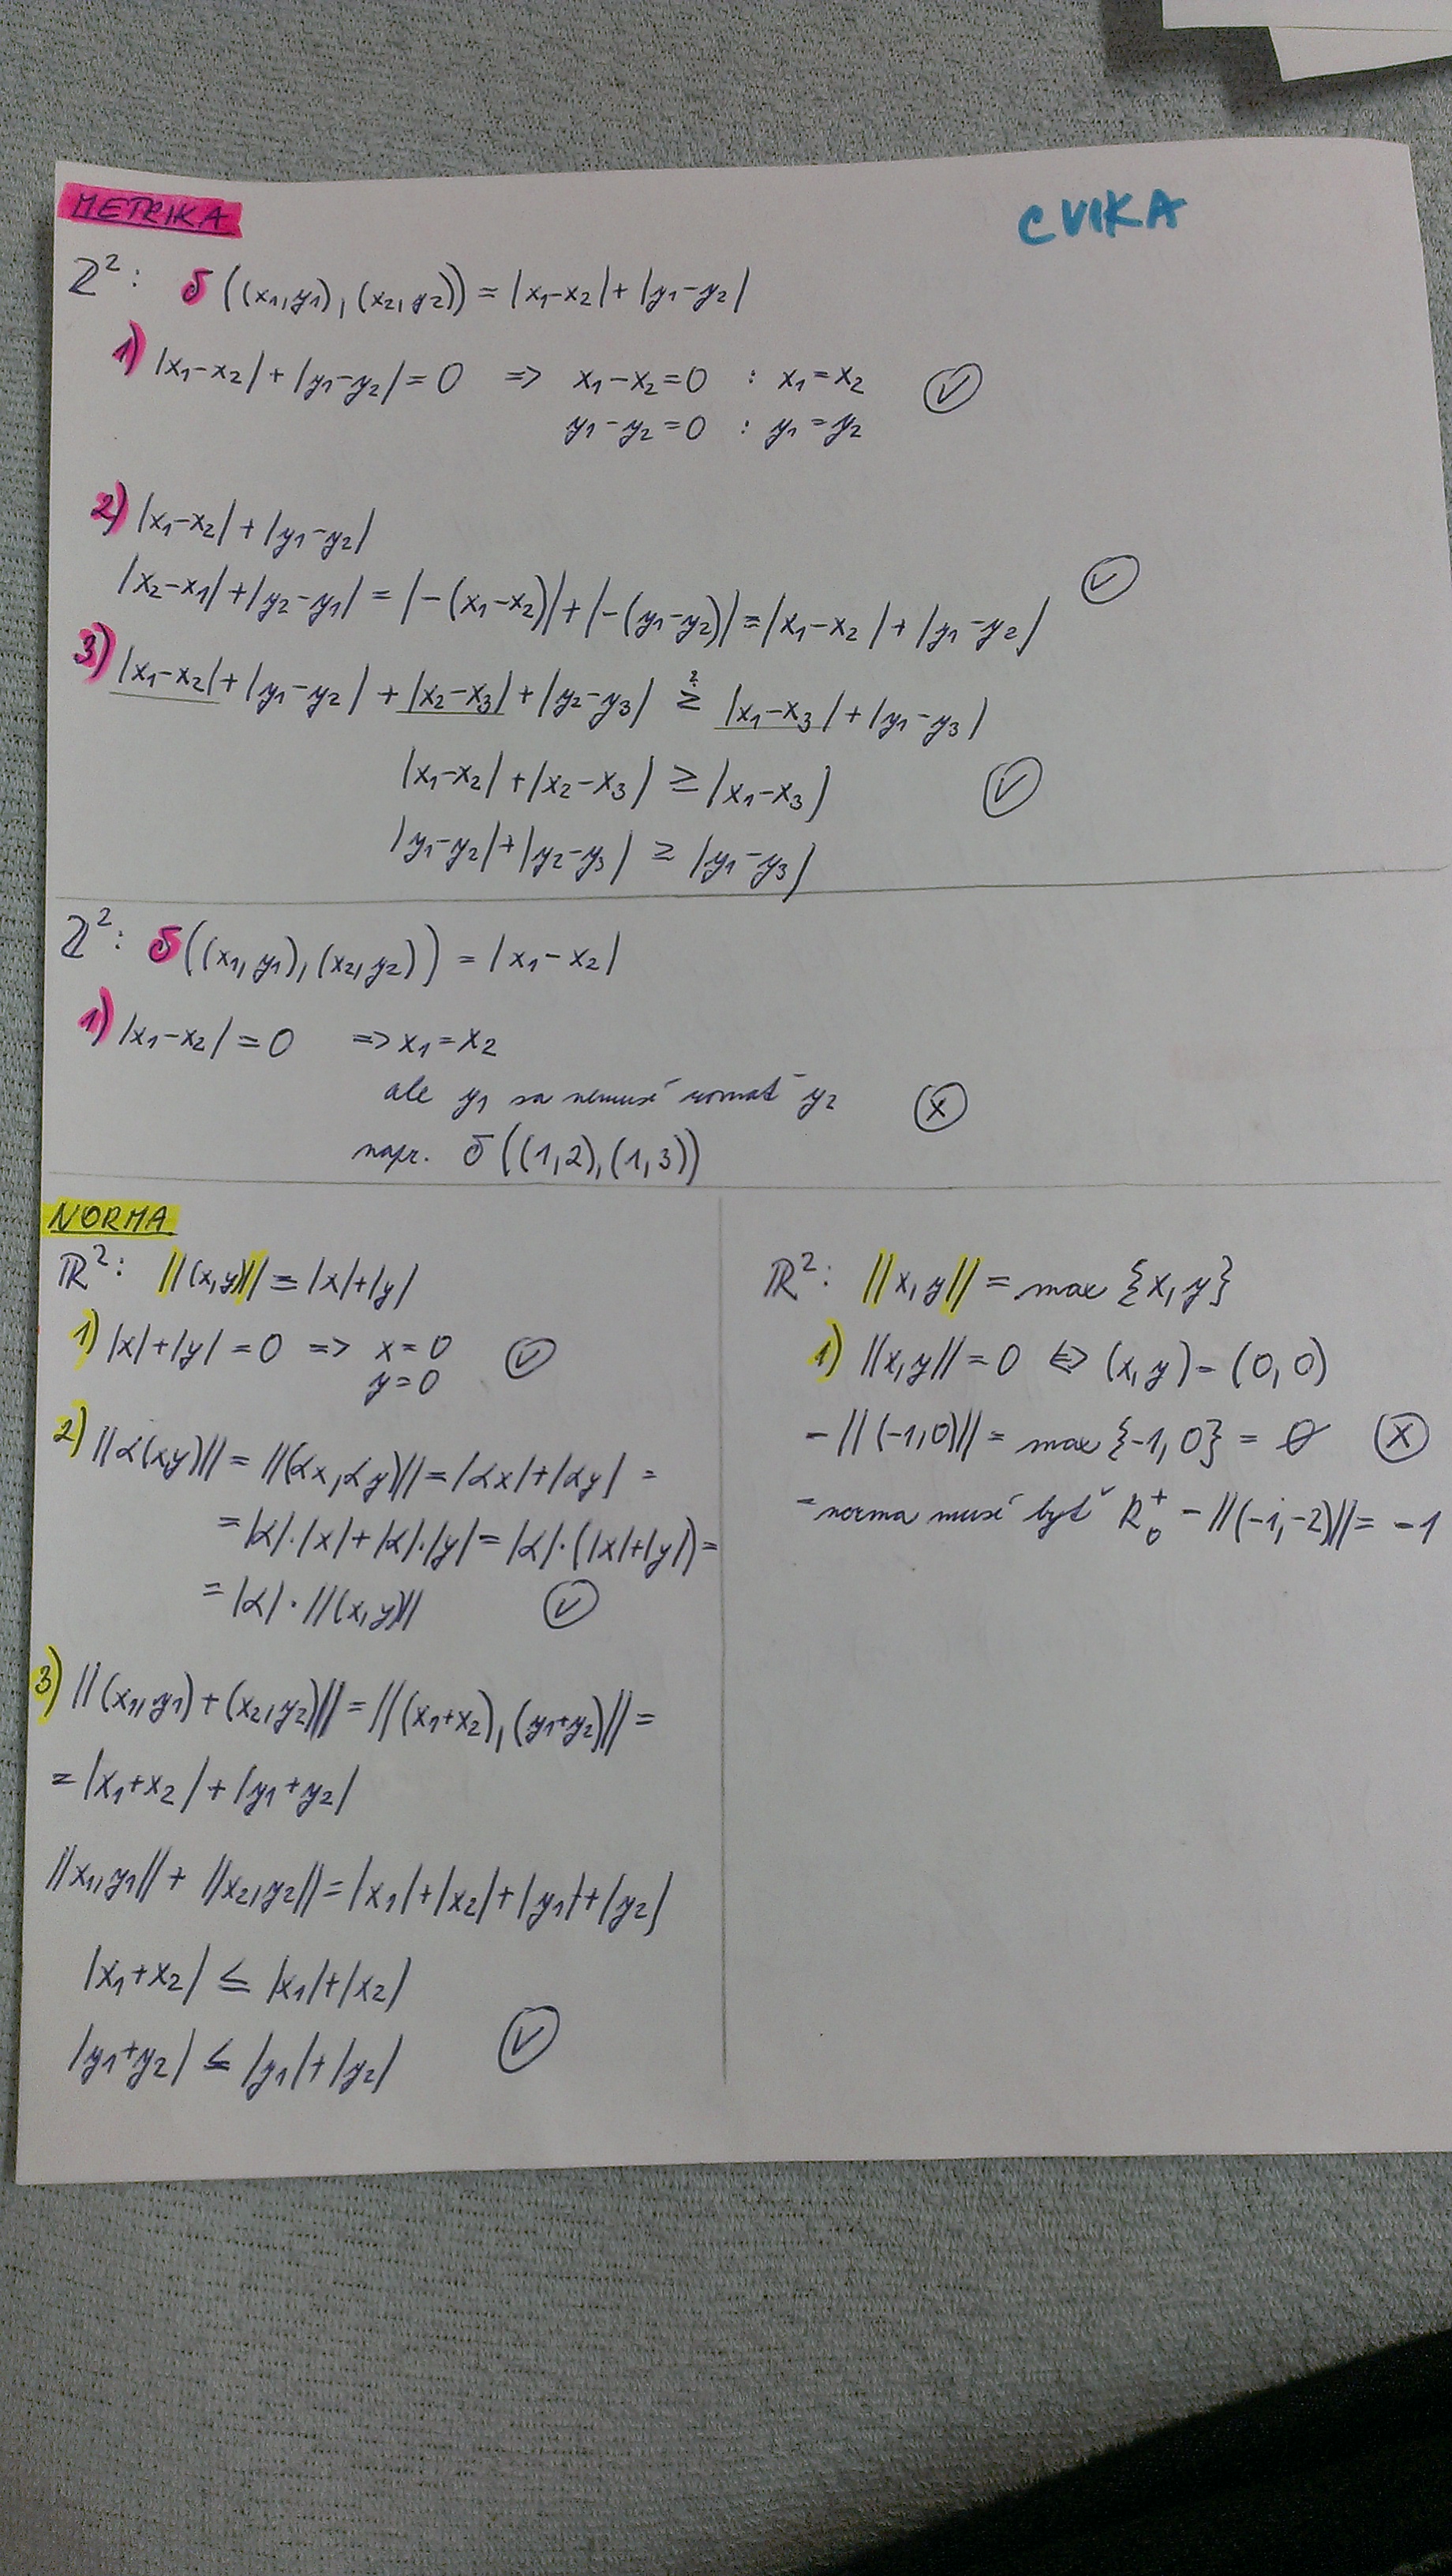 METRIKA
CVIKA
ℤ²: δ((x₁,y₁),(x₂,y₂)) = |x₁-x₂|+|y₁-y₂|
1) |x₁-x₂|+|y₁-y₂|=0 => x₁-x₂=0 : x₁=x₂ ✓
y₁-y₂=0 : y₁=y₂
2) |x₁-x₂|+|y₁-y₂|
|x₂-x₁|+|y₂-y₁| = |-(x₁-x₂)|+|-(y₁-y₂)|=|x₁-x₂|+|y₁-y₂| ✓
3) |x₁-x₂|+|y₁-y₂|+|x₂-x₃|+|y₂-y₃| ≥? |x₁-x₃|+|y₁-y₃|
|x₁-x₂|+|x₂-x₃| ≥ |x₁-x₃| ✓
|y₁-y₂|+|y₂-y₃| ≥ |y₁-y₃|
ℤ²: δ((x₁,y₁),(x₂,y₂)) = |x₁-x₂|
1) |x₁-x₂| = 0 => x₁=x₂
ale y₁ sa nemusí rovnať y₂ x
napr. δ((1,2),(1,3))
NORMA
ℝ²: ||(x,y)|| = |x|+|y|
1) |x|+|y| = 0 => x=0 ✓
y=0
2) ||α(x,y)|| = ||(αx,αy)|| = |αx|+|αy| =
= |α|·|x|+|α|·|y| = |α|·(|x|+|y|) =
= |α|·||(x,y)|| ✓
3) ||(x₁,y₁)+(x₂,y₂)|| = ||(x₁+x₂),(y₁+y₂)|| =
= |x₁+x₂|+|y₁+y₂|
||x₁,y₁|| + ||x₂,y₂|| = |x₁|+|x₂|+|y₁|+|y₂|
|x₁+x₂| ≤ |x₁|+|x₂|
|y₁+y₂| ≤ |y₁|+|y₂| ✓
ℝ²: ||x,y|| = max {x,y}
1) ||x,y|| = 0 <=> (x,y) = (0,0)
- ||(-1,0)|| = max {-1,0} = 0 x
- norma musí byť R₀⁺ - ||(-1,-2)|| = -1